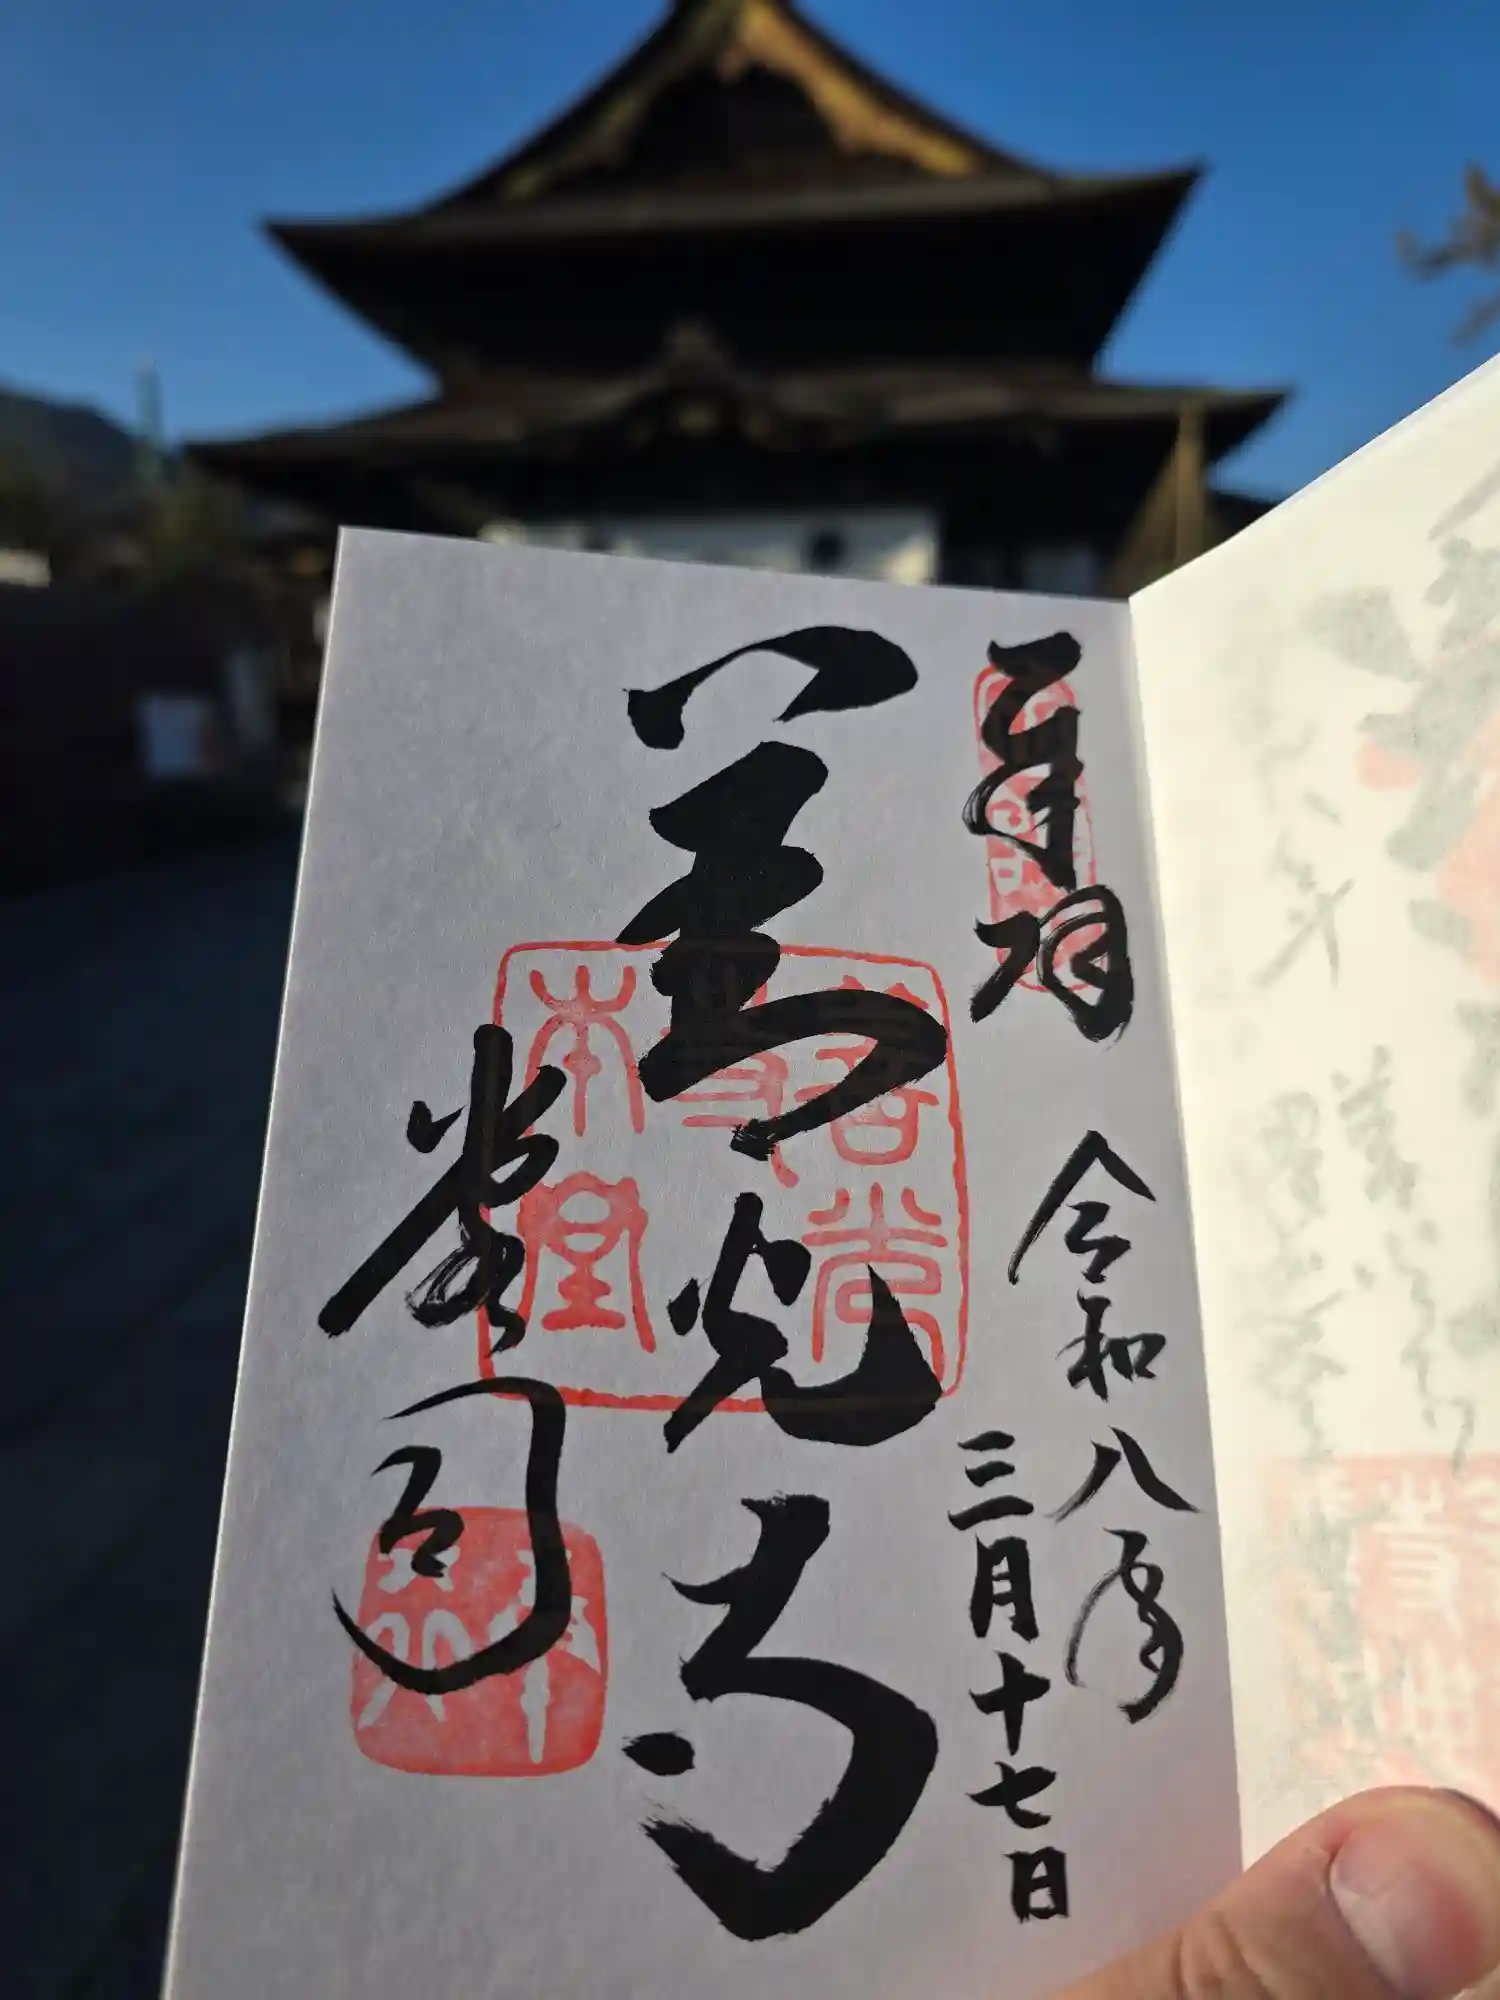 奉拝
令和八年
三月十七日
善光寺
堂司
善光寺本堂